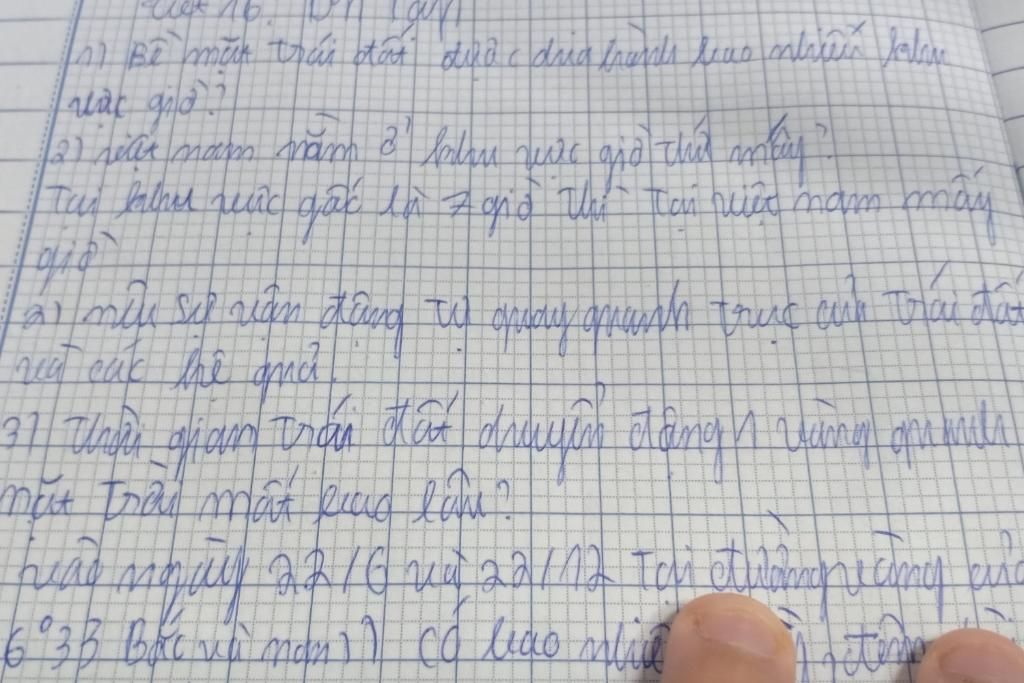 Tiết 16. Ôn tập
1) Bề mặt trái đất được chia thành bao nhiêu khu
vực giờ?
2) việt nam nằm ở khu vực giờ thứ mấy?
Tại khu vực gốc là 7 giờ thì tại việt nam mấy
giờ
2) nêu sự vận động tự quay quanh trục của trái đất
và các hệ quả.
3) Thời gian trái đất chuyển động 1 vòng quanh
mặt trời mất bao lâu?
vào ngày 22/6 và 22/12 tại đường vòng
6°33 Bắc và nam)) có bao đêm